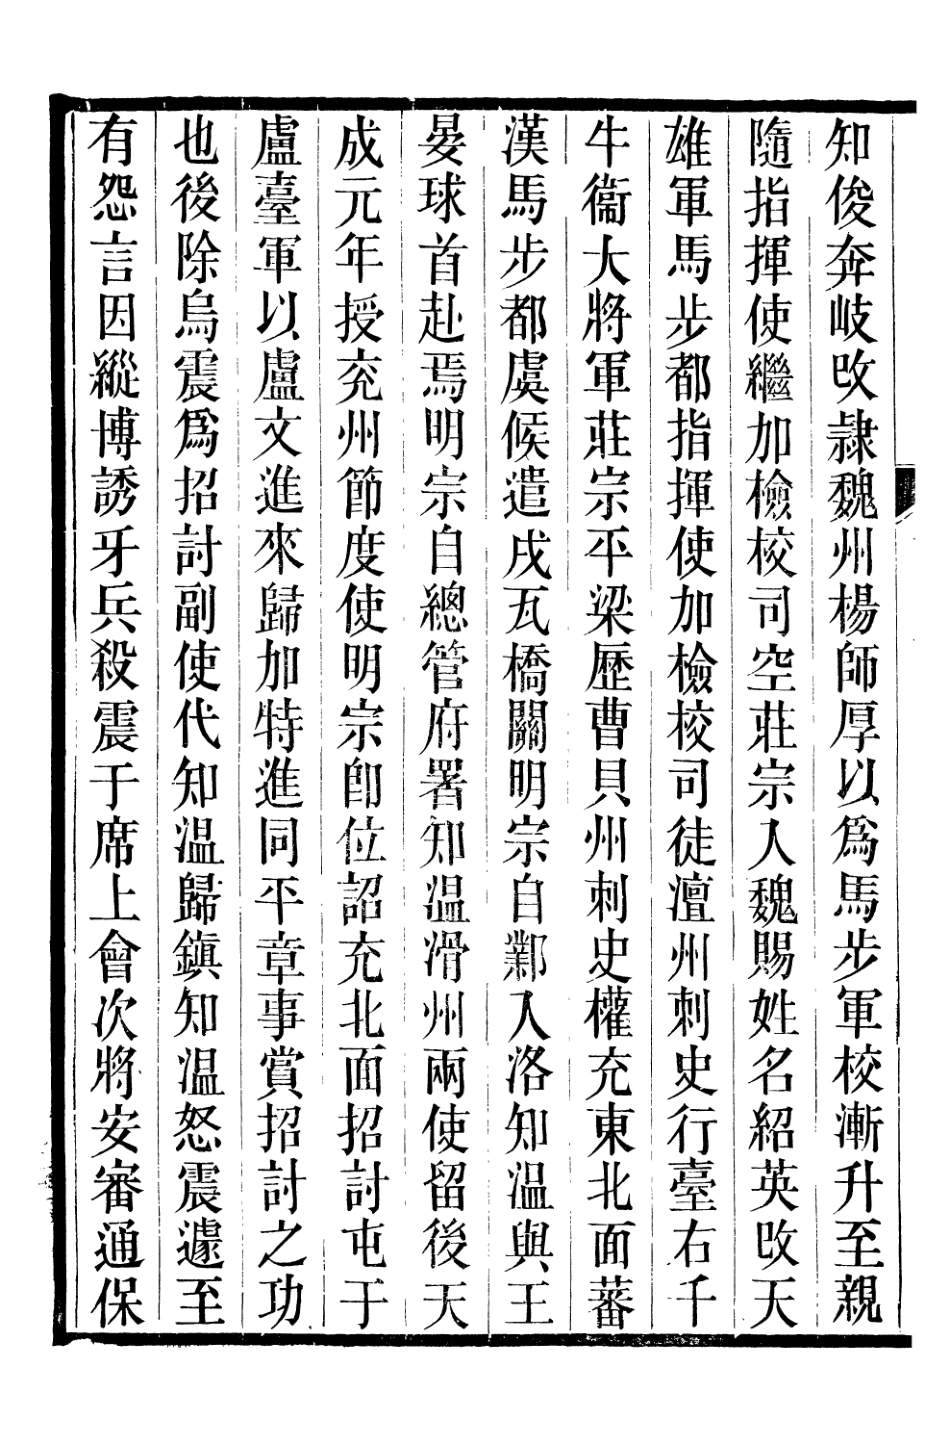 知俊奔岐改隷魏州楊師厚以爲馬步軍校漸升至親
隨指揮使繼加檢校司空莊宗入魏賜姓名紹英改天
雄軍馬步都指揮使加檢校司徒澶州刺史行臺右千
牛衞大將軍莊宗平梁歷曹貝州刺史權充東北面蕃
漢馬步都虞候遣戌瓦橋關明宗自鄴入洛知温與王
晏球首赴焉明宗自總管府署知温滑州兩使留後天
成元年授兖州節度使明宗卽位詔充北面招討屯于
盧臺軍以盧文進來歸加特進同平章事賞招討之功
也後除烏震爲招討副使代知温歸鎮知温怒震遽至
有怨言因縱博誘牙兵殺震于席上會次將安審通保